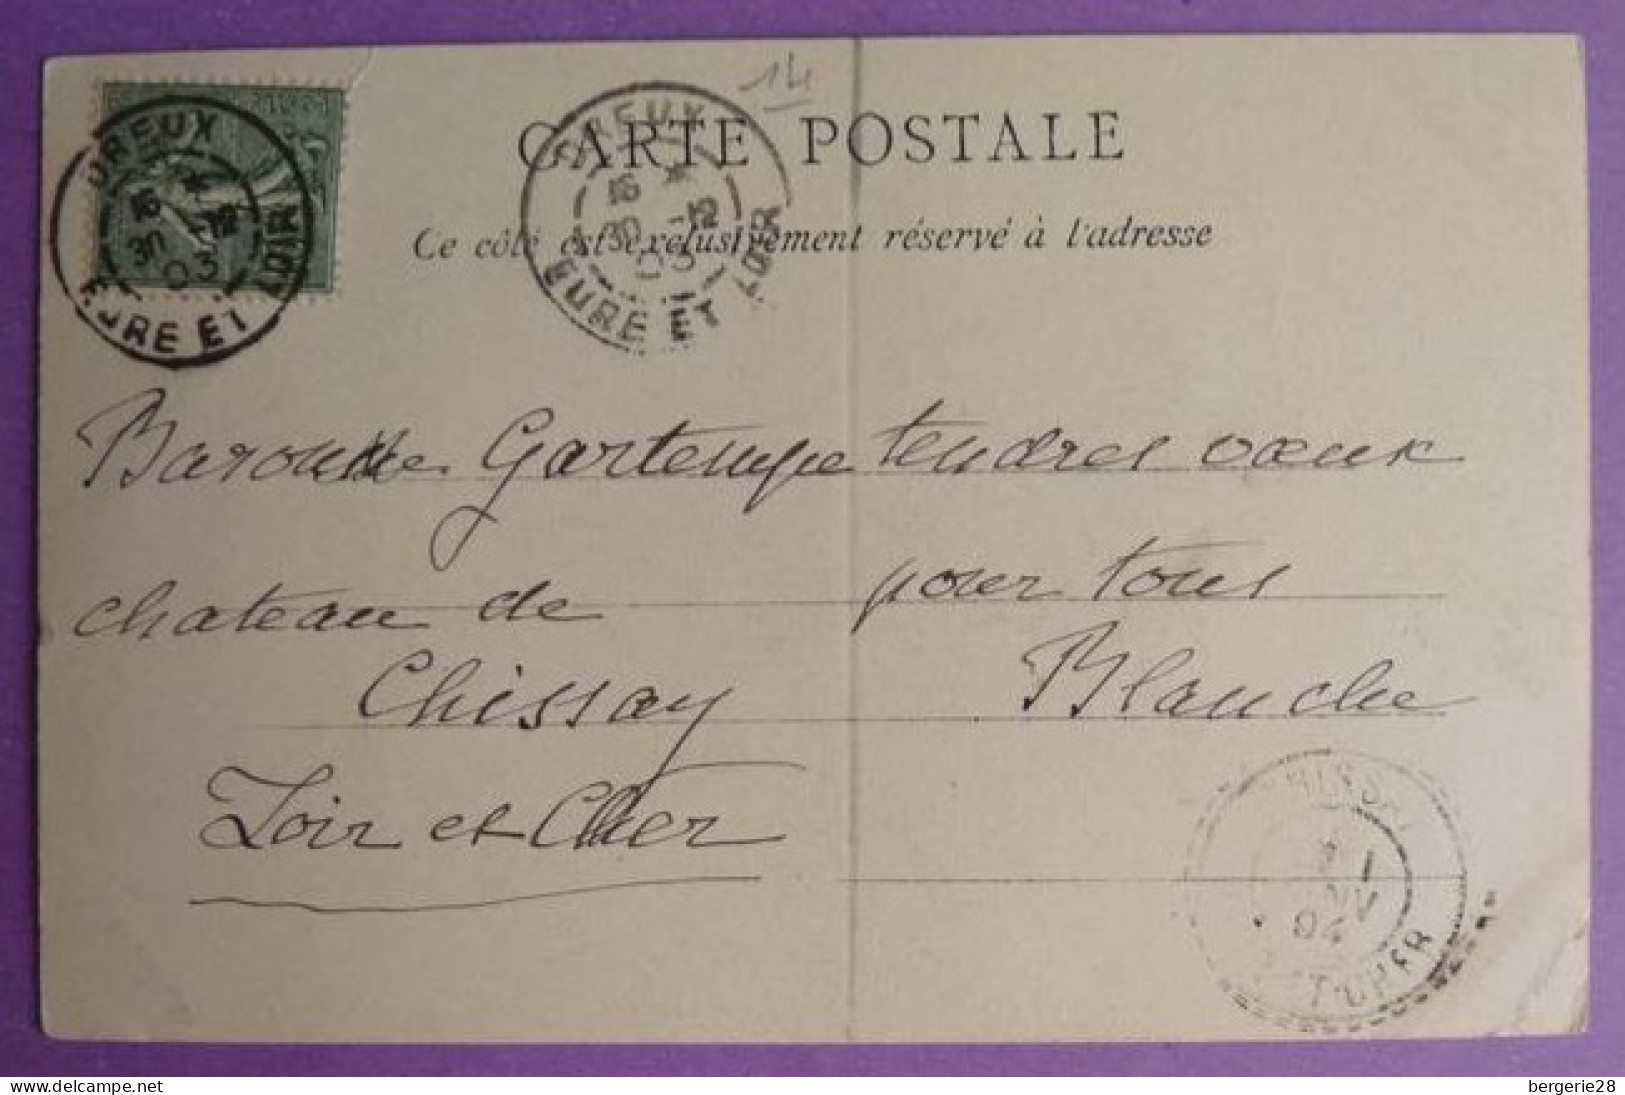 14
CARTE POSTALE
Ce côté est exclusivement réservé à l'adresse
DREUX
16 *
30 -12
03
EURE ET LOIR
DREUX
16 *
30 -12
03
EURE ET LOIR
Baronne Gartempe tendres vœux
chateau de pour tous
Chissay Blanche
Loir et Cher
04
ET CHER
www.delcampe.net
bergerie28